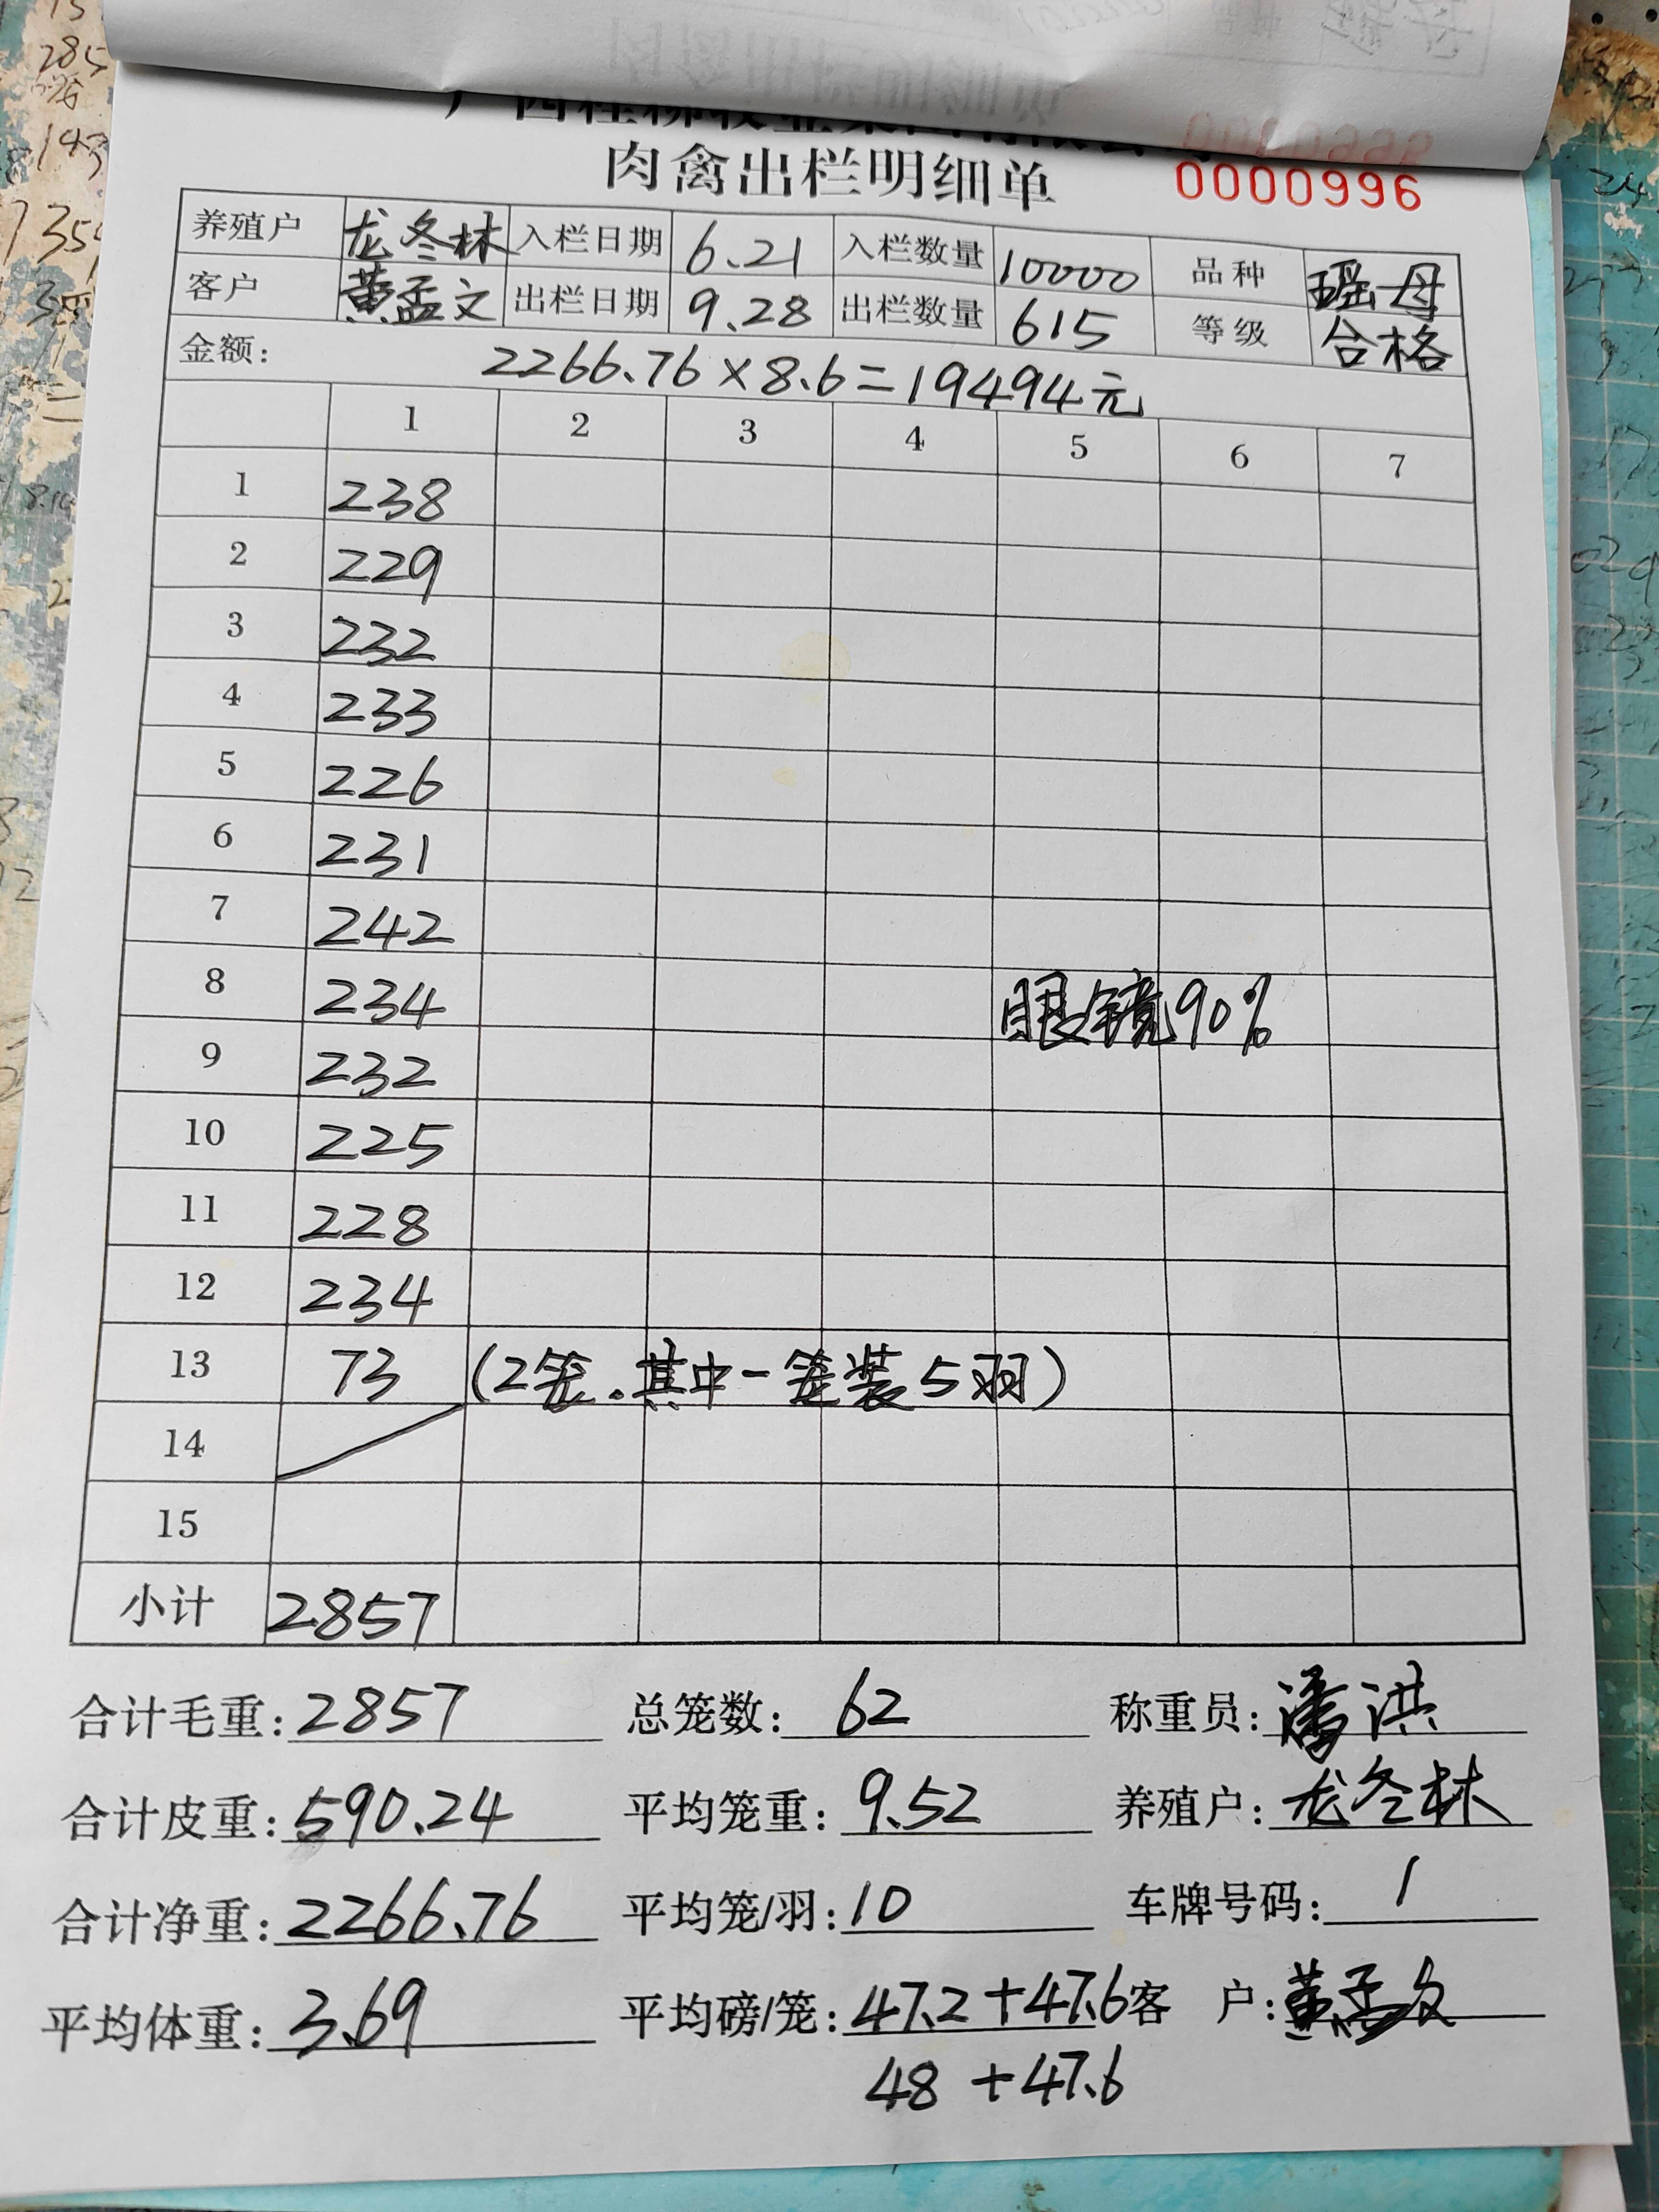 肉禽出栏明细单 0000996
养殖户 龙冬林 入栏日期 6.21 入栏数量 10000 品种 瑶母
客户 黄孟文 出栏日期 9.28 出栏数量 615 等级 合格
金额: 2266.76×8.6=19494元
1 2 3 4 5 6 7
1 238
2 229
3 232
4 233
5 226
6 231
7 242
8 234 眼镜90%
9 232
10 225
11 228
12 234
13 73 (2笼.其中一笼装5羽)
14
15
小计 2857
合计毛重: 2857 总笼数: 62 称重员: 潘洪
合计皮重: 590.24 平均笼重: 9.52 养殖户: 龙冬林
合计净重: 2266.76 平均笼/羽: 10 车牌号码: 1
平均体重: 3.69 平均磅/笼: 47.2+47.6 客 户: 黄孟文
48 +47.6